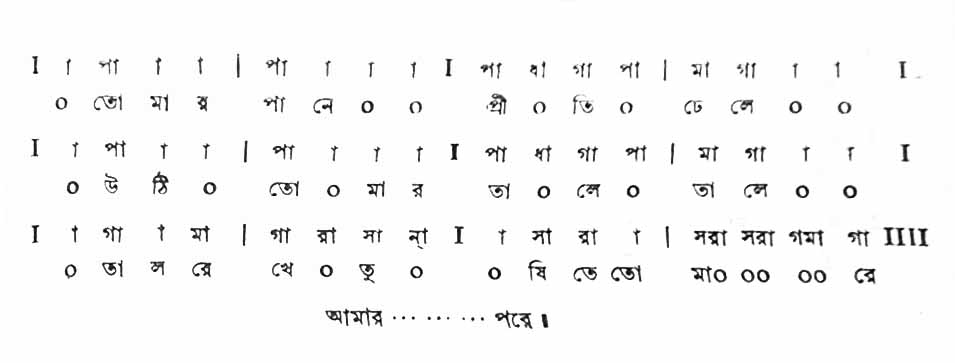 I া পা া া | পা া া া I পা ধা গা পা | মা গা া া I
০ তো মা র পা নে ০ ০ প্রী ০ তি ০ ঢে লে ০ ০
I া পা া া | পা া া া I পা ধা গা পা | মা গা া া I
০ উ ঠি ০ তো ০ মা র তা ০ লে ০ তা লে ০ ০
I া গা া মা | গা রা সা ন্া I া সা রা া | সরা সরা গমা গা IIII
০ তা ল রে খে ০ তু ০ ০ ষি তে তো মা০ ০০ ০০ রে
আমার ... ... ... পরে।